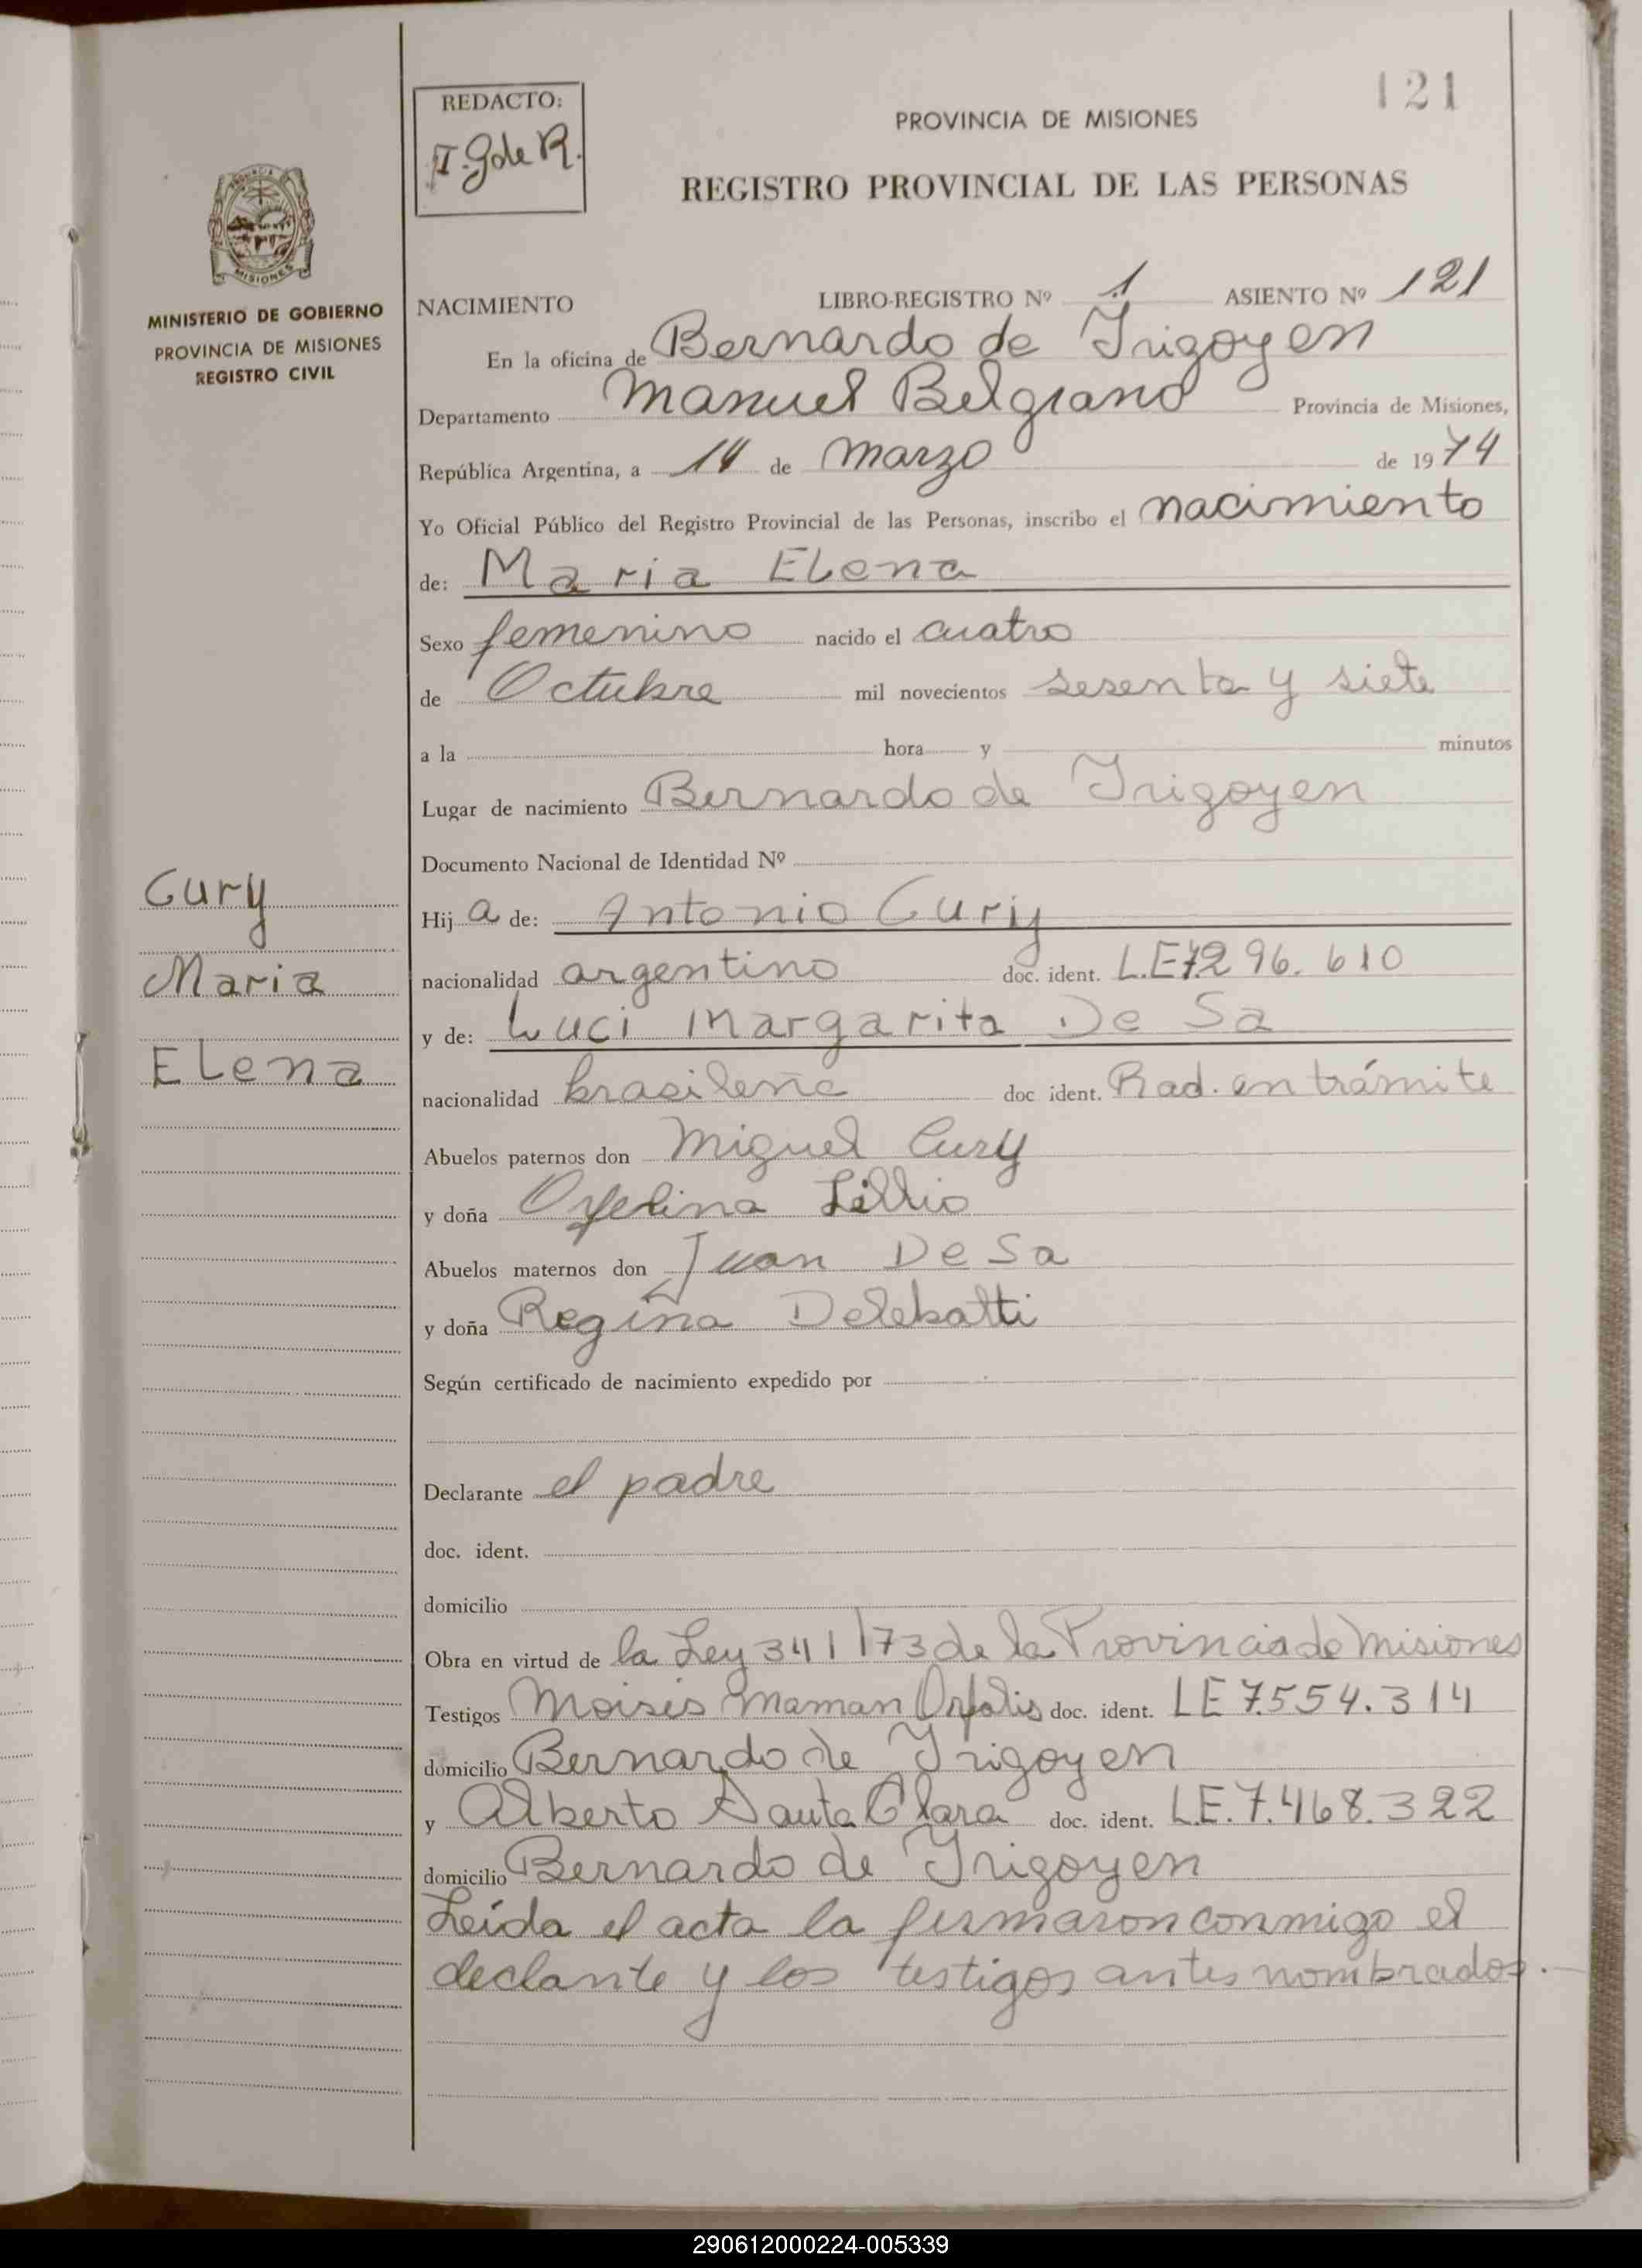 121
REDACTO:
T. G de R.
PROVINCIA DE MISIONES
REGISTRO PROVINCIAL DE LAS PERSONAS
MISIONES
MINISTERIO DE GOBIERNO
PROVINCIA DE MISIONES
REGISTRO CIVIL
NACIMIENTO LIBRO-REGISTRO Nº 1 ASIENTO Nº 121
En la oficina de Bernardo de Irigoyen
Departamento Manuel Belgrano Provincia de Misiones,
República Argentina, a 14 de Marzo de 1974
Yo Oficial Público del Registro Provincial de las Personas, inscribo el nacimiento
de: Maria Elena
Sexo femenino nacido el cuatro
de Octubre mil novecientos sesenta y siete
a la hora y minutos
Lugar de nacimiento Bernardo de Irigoyen
Documento Nacional de Identidad Nº
Cury
Maria
Elena
Hija de: Antonio Cury
nacionalidad argentino doc. ident. L.E 7.296.610
y de: Luci Margarita De Sa
nacionalidad brasileña doc ident. Rad. en trámite
Abuelos paternos don Miguel Cury
y doña Ofelina Lillio
Abuelos maternos don Juan De Sa
y doña Regina Delebatti
Según certificado de nacimiento expedido por
Declarante el padre
doc. ident.
domicilio
Obra en virtud de la Ley 341/73 de la Provincia de Misiones
Testigos Moisés Maman Orfalis doc. ident. LE 7.554.314
domicilio Bernardo de Irigoyen
y Alberto Santa Clara doc. ident. L.E. 7.468.322
domicilio Bernardo de Irigoyen
Leída el acta la firmaron conmigo el
declante y los testigos antes nombrados.
290612000224-005339